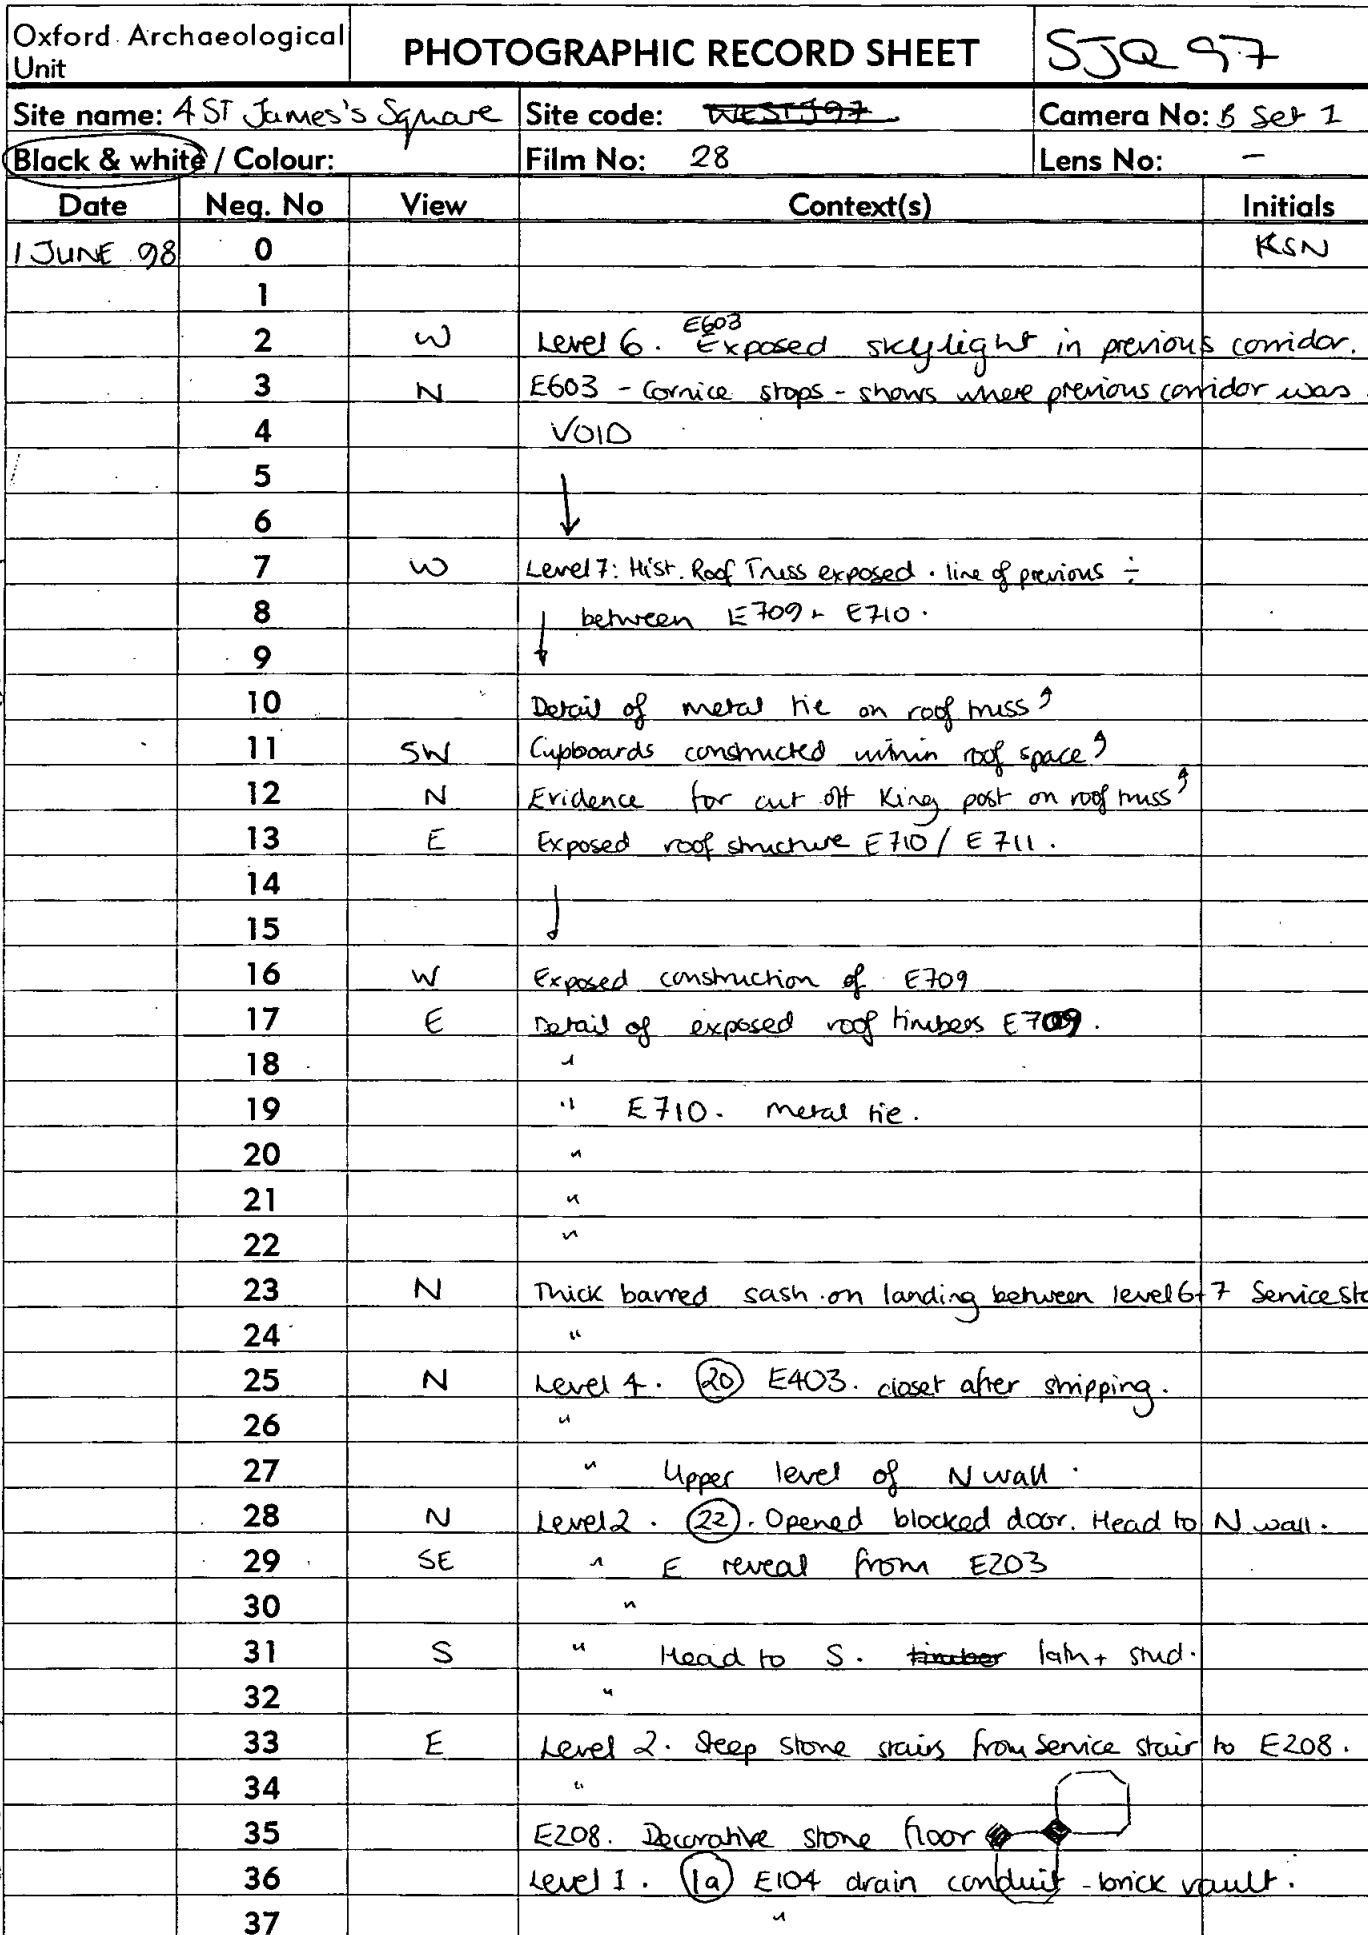 Oxford Archaeological Unit PHOTOGRAPHIC RECORD SHEET SJQ 97
Site name: 4 ST James's Square Site code: WESTJ97 Camera No: B Set 1
Black & white / Colour: Film No: 28 Lens No: –
Date Neg. No View Context(s) Initials
1 JUNE 98 0 KSN
1
2 W Level 6. E603 Exposed skylight in previous corridor.
3 N E603 - Cornice stops - shows where previous corridor was.
4 VOID
5
6 ↓
7 W Level 7: Hist. Roof Truss exposed. line of previous ÷
8 between E709 + E710.
9 ↓
10 Detail of metal tie on roof truss
11 SW Cupboards constructed within roof space
12 N Evidence for cut off King post on roof truss
13 E Exposed roof structure E710 / E711.
14
15 ↓
16 W Exposed construction of E709
17 E Detail of exposed roof timbers E709.
18 "
19 " E710. metal tie.
20 "
21 "
22 "
23 N Thick barred sash on landing between level 6+7 Service sta
24 "
25 N Level 4. (20) E403. closet after stripping.
26 "
27 " Upper level of N wall.
28 N Level 2. (22). Opened blocked door. Head to N wall.
29 SE " E reveal from E203
30 "
31 S " Head to S. timber lath + stud.
32 "
33 E Level 2. Steep stone stairs from Service stair to E208.
34 "
35 E208. Decorative stone floor
36 Level 1. (1a) E104 drain conduit - brick vault.
37 "